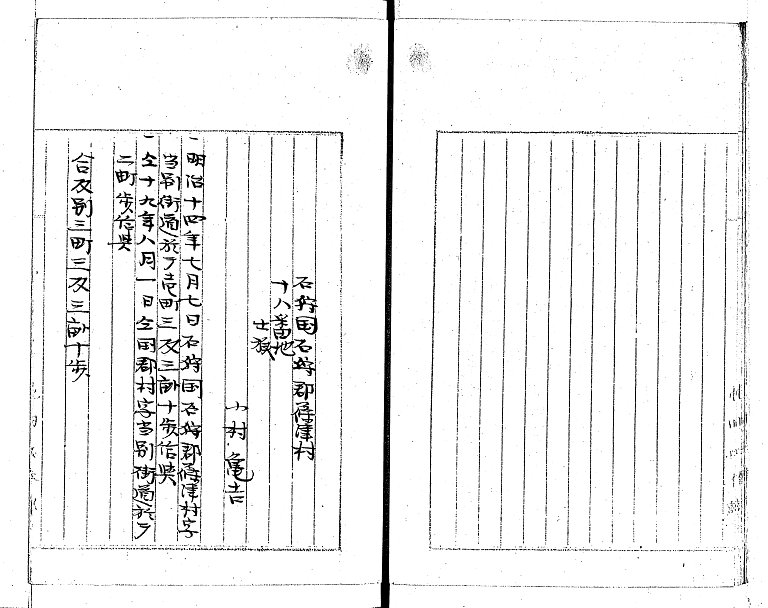 石狩国石狩郡篠津村
十八番地
士族
小村亀吉
一明治十四年七月七日石狩国石狩郡篠津村字
当別街道於テ壱町三反三畝十歩付与
一仝十九年八月一日仝国郡村字当別街道於テ
二町歩付与
合反別三町三反三畝十歩